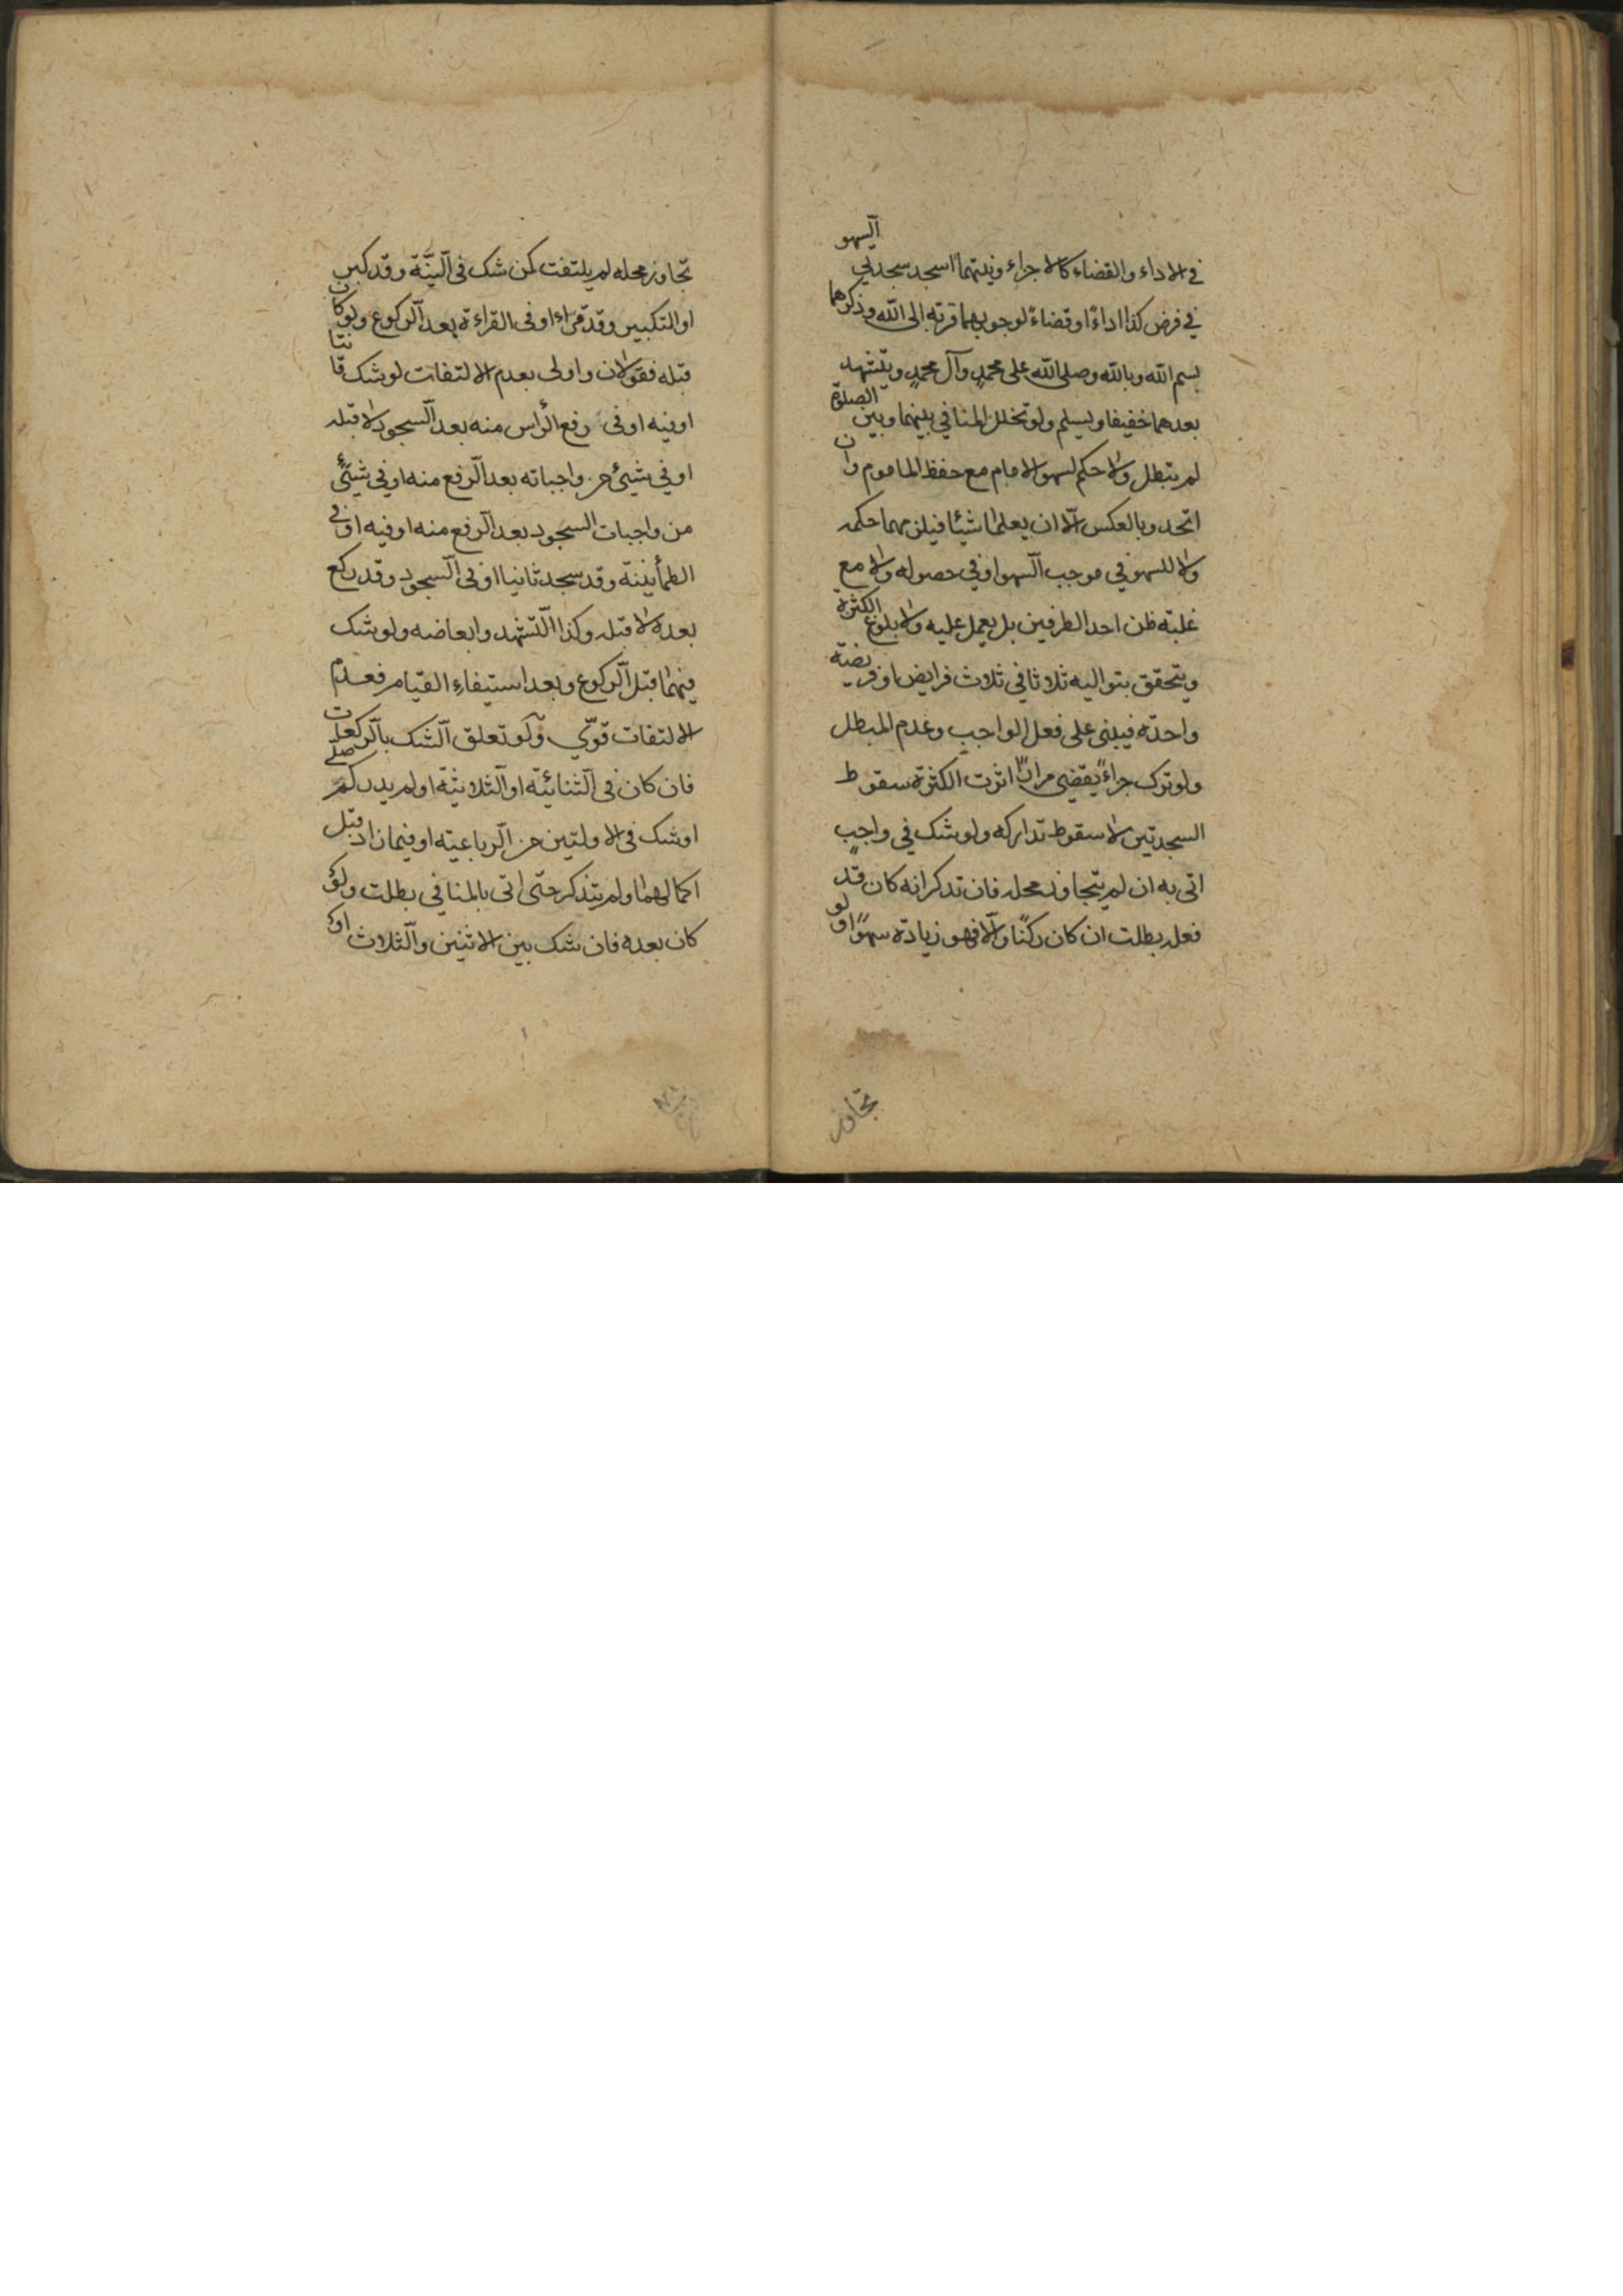 في الاداء والقضاء كالاجزاء ونيتهما اسجد سجدتي السهو
في فرض كذا اداءً او قضاءً لوجوبهما قربة الى الله وذكرهما
بسم الله وبالله وصلى الله على محمدٍ وآل محمدٍ ويتشهد
بعدهما خفيفا ويسلم ولو تخلل المنافي بينهما وبين الصلوة
لم يبطل ولا حكم لسهو الامام مع حفظ الماموم وان
اتحد وبالعكس الّا ان يعلما شيئا فيلزمهما حكمه
ولا للسهو في موجب السّهو او في حصوله ولا مع
غلبة ظن احد الطرفين بل يعمل عليه ولا بلوغ الكثرة
ويتحقق بتواليه ثلاثا في ثلاث فرايض او فريضة
واحدة فيبنى على فعل الواجب وعدم المبطل
ولو ترك جزاءً يقضي مراتٍ اثرت الكثرة سقوط
السجدتين لا سقوط تداركه ولو شك في واجبٍ
اتى به ان لم يتجاوز محله فان تذكر انه كان قد
فعله بطلت ان كان ركنًا والّا فهو زيادة سهوًا ولو
تجاوز
تجاوز محله لم يلتفت كمن شك في النّيّة وقد كبر
او التكبير وقد قراء او في القراءة بعد الرّكوع ولو كان
قبله فقولان واولى بعدم الالتفات لو شك قانتا
او فيه او في رفع الرّاس منه بعد السّجود لا قبله
او في شيئ من واجباته بعد الرّفع منه او في شيئ
من واجبات السجود بعد الرّفع منه او فيه او في
الطمأنينة وقد سجد ثانيا او في السّجود وقد ركع
بعده لا قبله وكذا التّشهد وابعاضه ولو شك
فيهما قبل الرّكوع وبعد استيفاء القيام فعدم
الالتفات قويّ ولو تعلق الشّك بالرّكعات
فان كان في الثّنائيّة او الثّلاثيّة او لم يدر كم صلى
او شك في الاولتين من الرّباعية او فيما زاد قبل
اكمالهما ولم يتذكر حتى اتى بالمنافي بطلت ولو
كان بعده فان شك بين الاثنين والثّلاث او